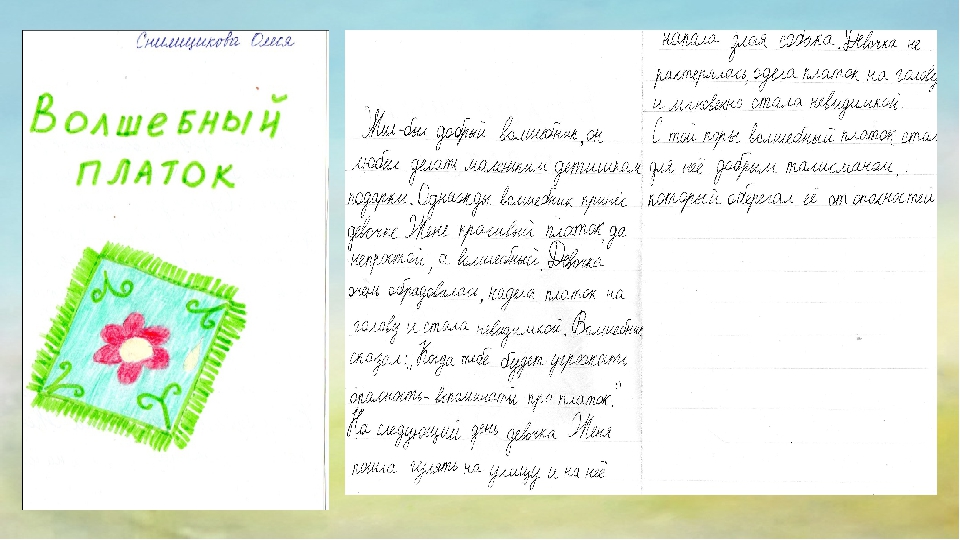 Снилщикова Олеся
Волшебный
платок
Жил-был добрый волшебник, он
любил делать маленьким детишкам
подарки. Однажды волшебник принёс
девочке Жене красивый платок, да
непростой, а волшебный. Девочка
очень обрадовалась, надела платок на
голову и стала невидимкой. Волшебник
сказал: „Когда тебе будет угрожать
опасность - вспомни ты про платок."
На следующий день девочка Женя
пошла гулять на улицу и на неё
напала злая собака. Девочка не
растерялась, одела платок на голову
и мгновенно стала невидимкой.
С той поры волшебный платок стал
для неё добрым талисманом,
который оберегал её от опасностей